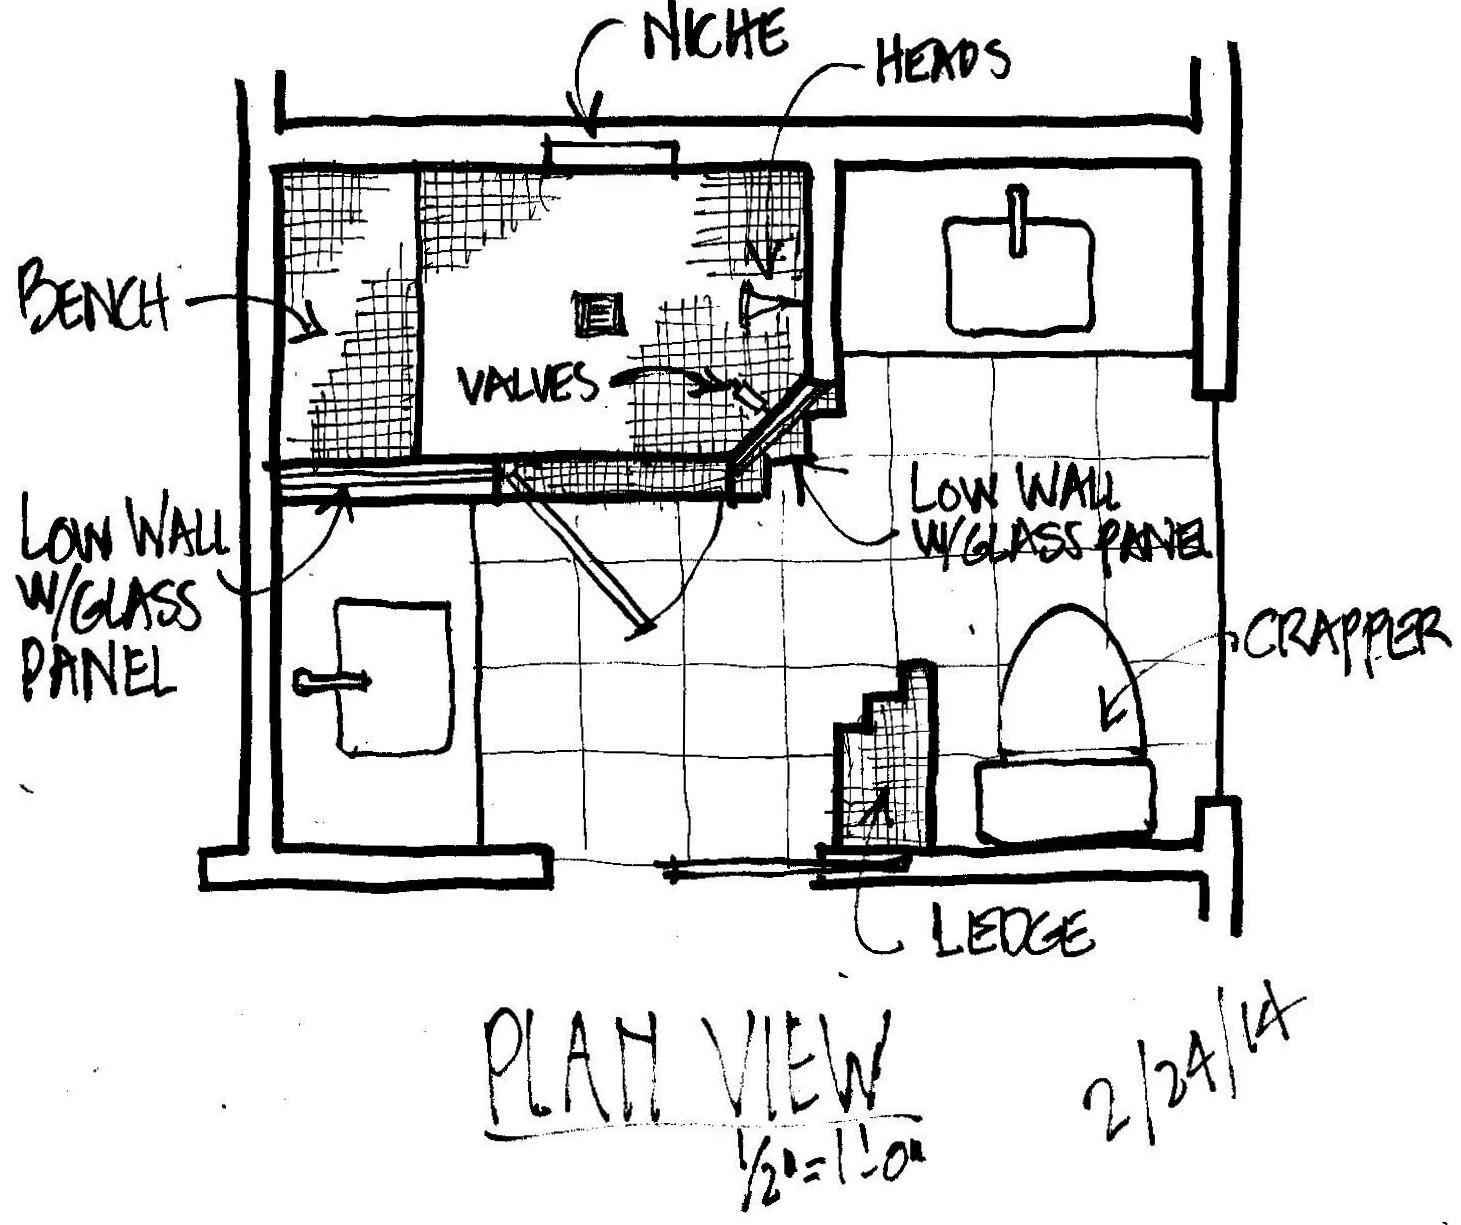 NICHE
HEADS
BENCH
VALVES
LOW WALL
W/GLASS
PANEL
LOW WALL
W/GLASS PANEL
CRAPPER
LEDGE
PLAN VIEW
1/2"=1'-0"
2/24/14